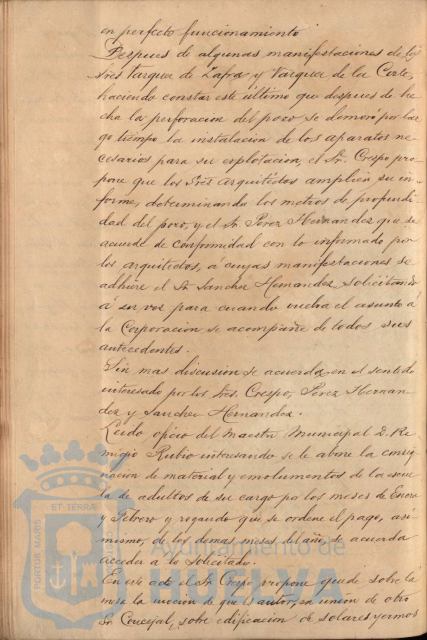 en perfecto funcionamiento
Despues de algunas manifestaciones de los
Sres Vazquez de Zafra y Vazquez de la Corte,
haciendo constar este último que despues de he
cha la perforacion del pozo se demoró por lar
go tiempo la instalacion de los aparatos ne
cesarios para su explotacion, el Sr. Crespo pro
pone que los Sres Arquitectos amplíen su in
forme, determinando los metros de profundi
dad del pozo, y el Sr. Perez Hernandez que se
acuerde de conformidad con lo informado por
los arquitectos, á cuyas manifestaciones se
adhiere el Sr Sanchez Hernandez solicitando
á su vez para cuando vuelva el asunto á
la Corporacion se acompañe de todos sus
antecedentes.
Sin mas discusion se acuerda en el sentido
interesado por los Sres. Crespo, Perez Hernan
dez y Sanchez Hernandez.
Leido oficio del Maestro Municipal D. Re
migio Rubio interesando se le abone la consig
nacion de material y emolumentos de la escue
la de adultos de su cargo por los meses de Enero
y Febrero y rogando que se ordene el pago, asi
mismo, de los demas meses del año, se acuerda
acceder a lo solicitado.
En este acto el Sr Crespo propone quede sobre la
mesa la mocion de que es autor, en union de otro
Sr Concejal, sobre edificacion de solares yermos
PORTUS MARIS ET TERRÆ CUSTODIA
Ayuntamiento de
HUELVA